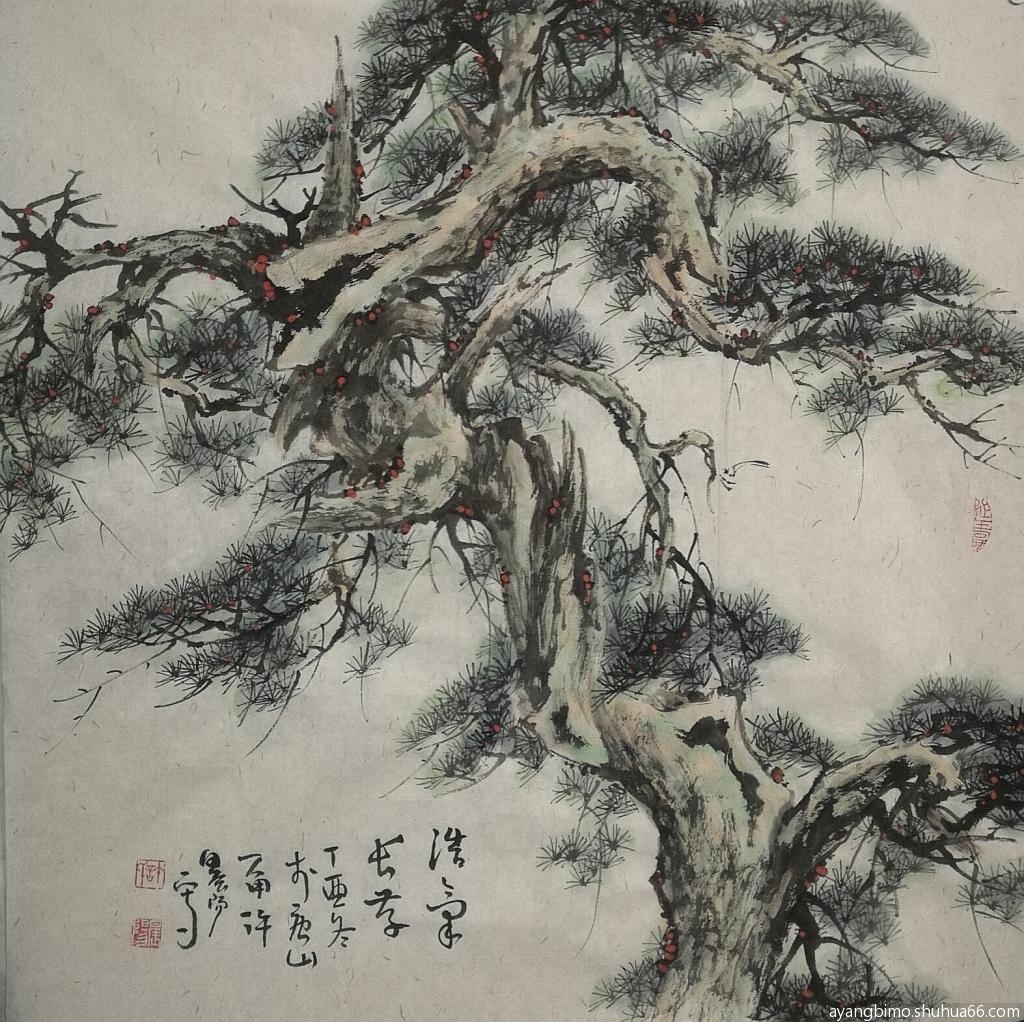 浩氣
长存
丁酉冬
于唐山
許
晨阳
ayangbimo.shuhua66.com